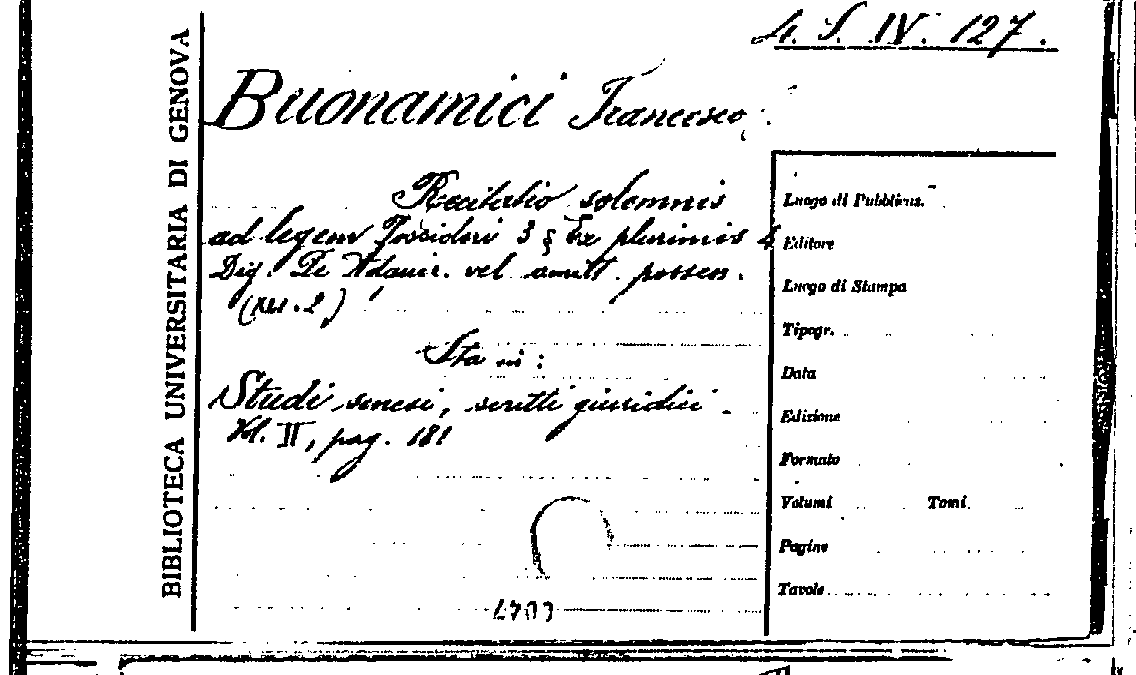 4. S. IV. 127.
BIBLIOTECA UNIVERSITARIA DI GENOVA
Buonamici Francesco
Recitatio solemnis
ad legem 3 § Ex plurimis 4
Dig. De Adquir. vel amitt. possess.
Sta in:
Studi senesi, scritti giuridici.
Vol. II, pag. 181
Luogo di Pubblicaz.
Editore
Luogo di Stampa
Tipogr.
Data
Edizione
Formato
Volumi Tomi
Pagine
Tavole